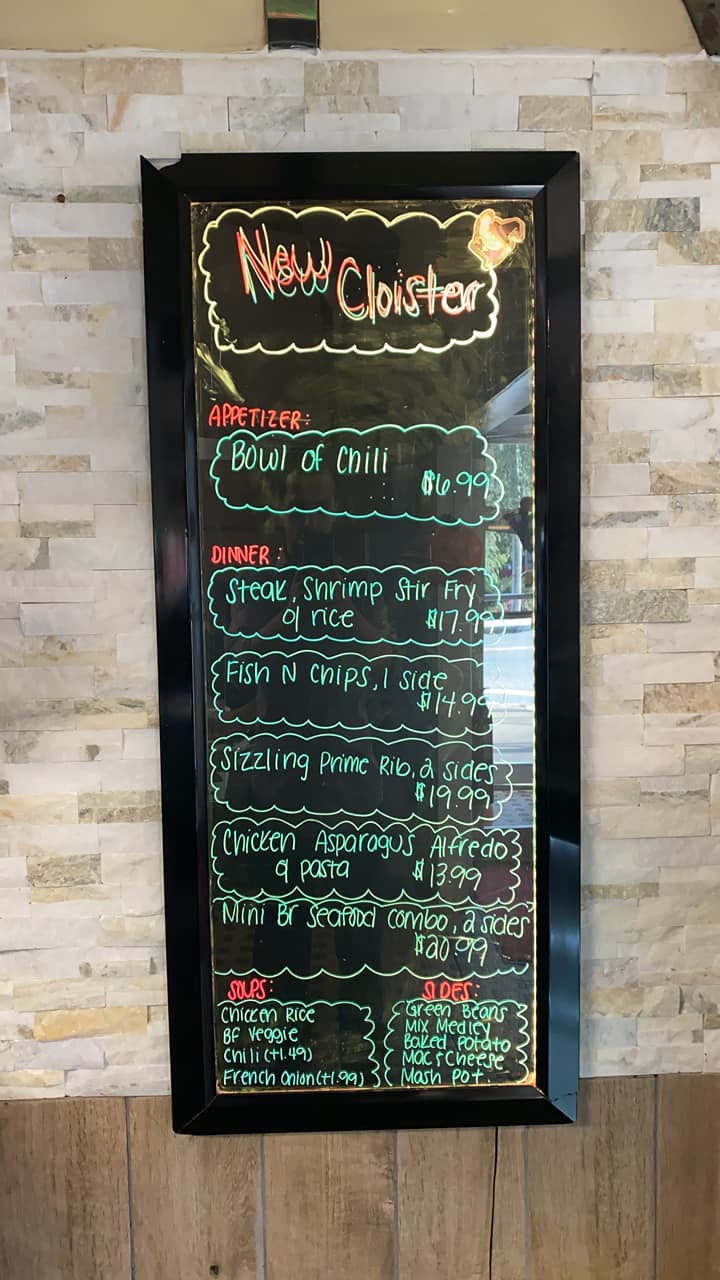 New Cloister
APPETIZER:
Bowl of Chili
$6.99
DINNER:
Steak, Shrimp Stir Fry
o/ rice $17.99
Fish N Chips, 1 side
$14.99
Sizzling Prime Rib, 2 sides
$19.99
Chicken Asparagus Alfredo
o/ pasta $13.99
Mini Br Seafood combo, 2 sides
$20.99
SOUPS:
Chicken Rice
BF Veggie
Chili (+1.49)
French Onion (+1.99)
SIDES:
Green Beans
Mix Medley
Baked Potato
Mac & Cheese
Mash Pot.